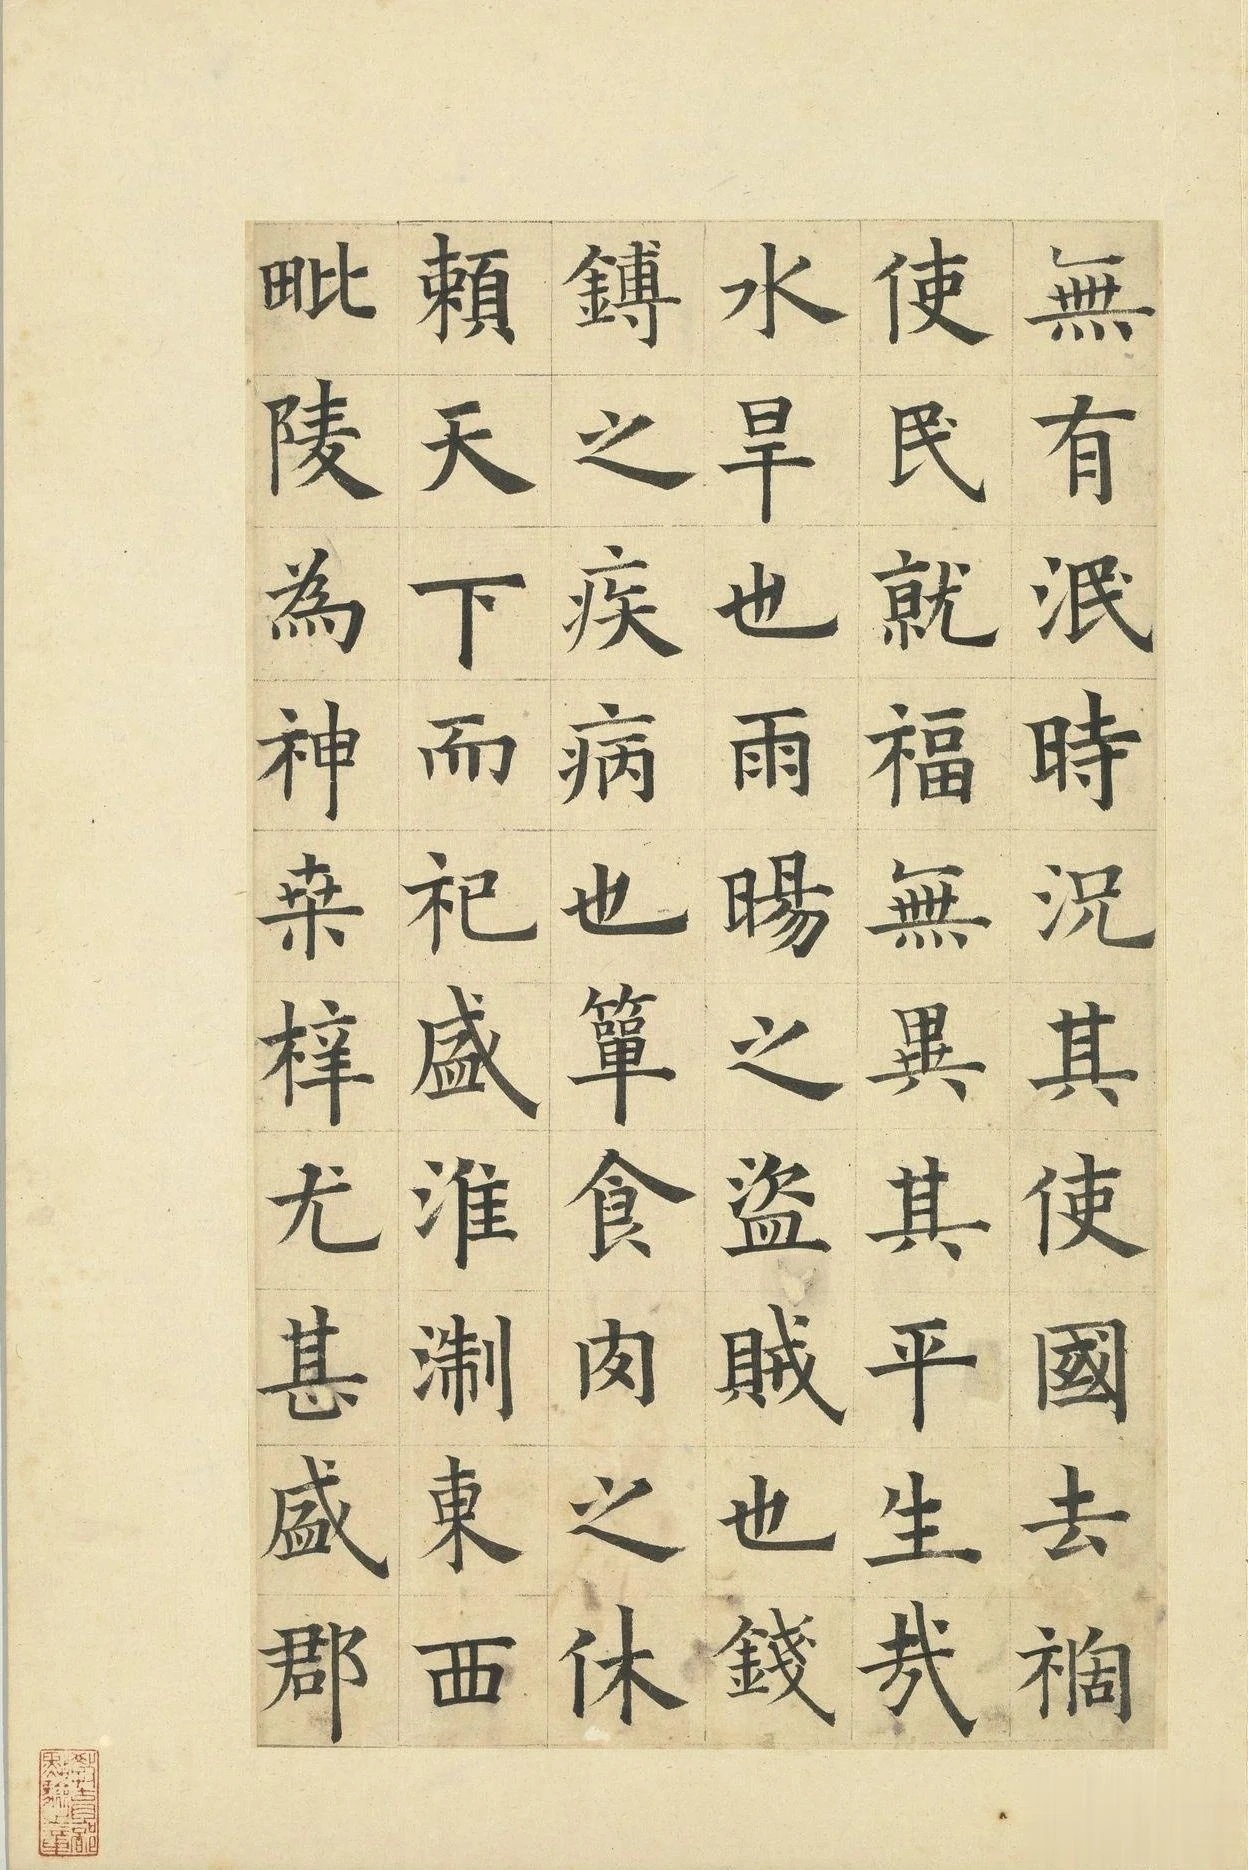 無有泯時況其使國去禍
使民就福無異其平生哉
水旱也雨暘之盜賊也錢
鎛之疾病也簞食肉之休
賴天下而祀盛淮淛東西
毗陵為神桒梓尤甚盛郡